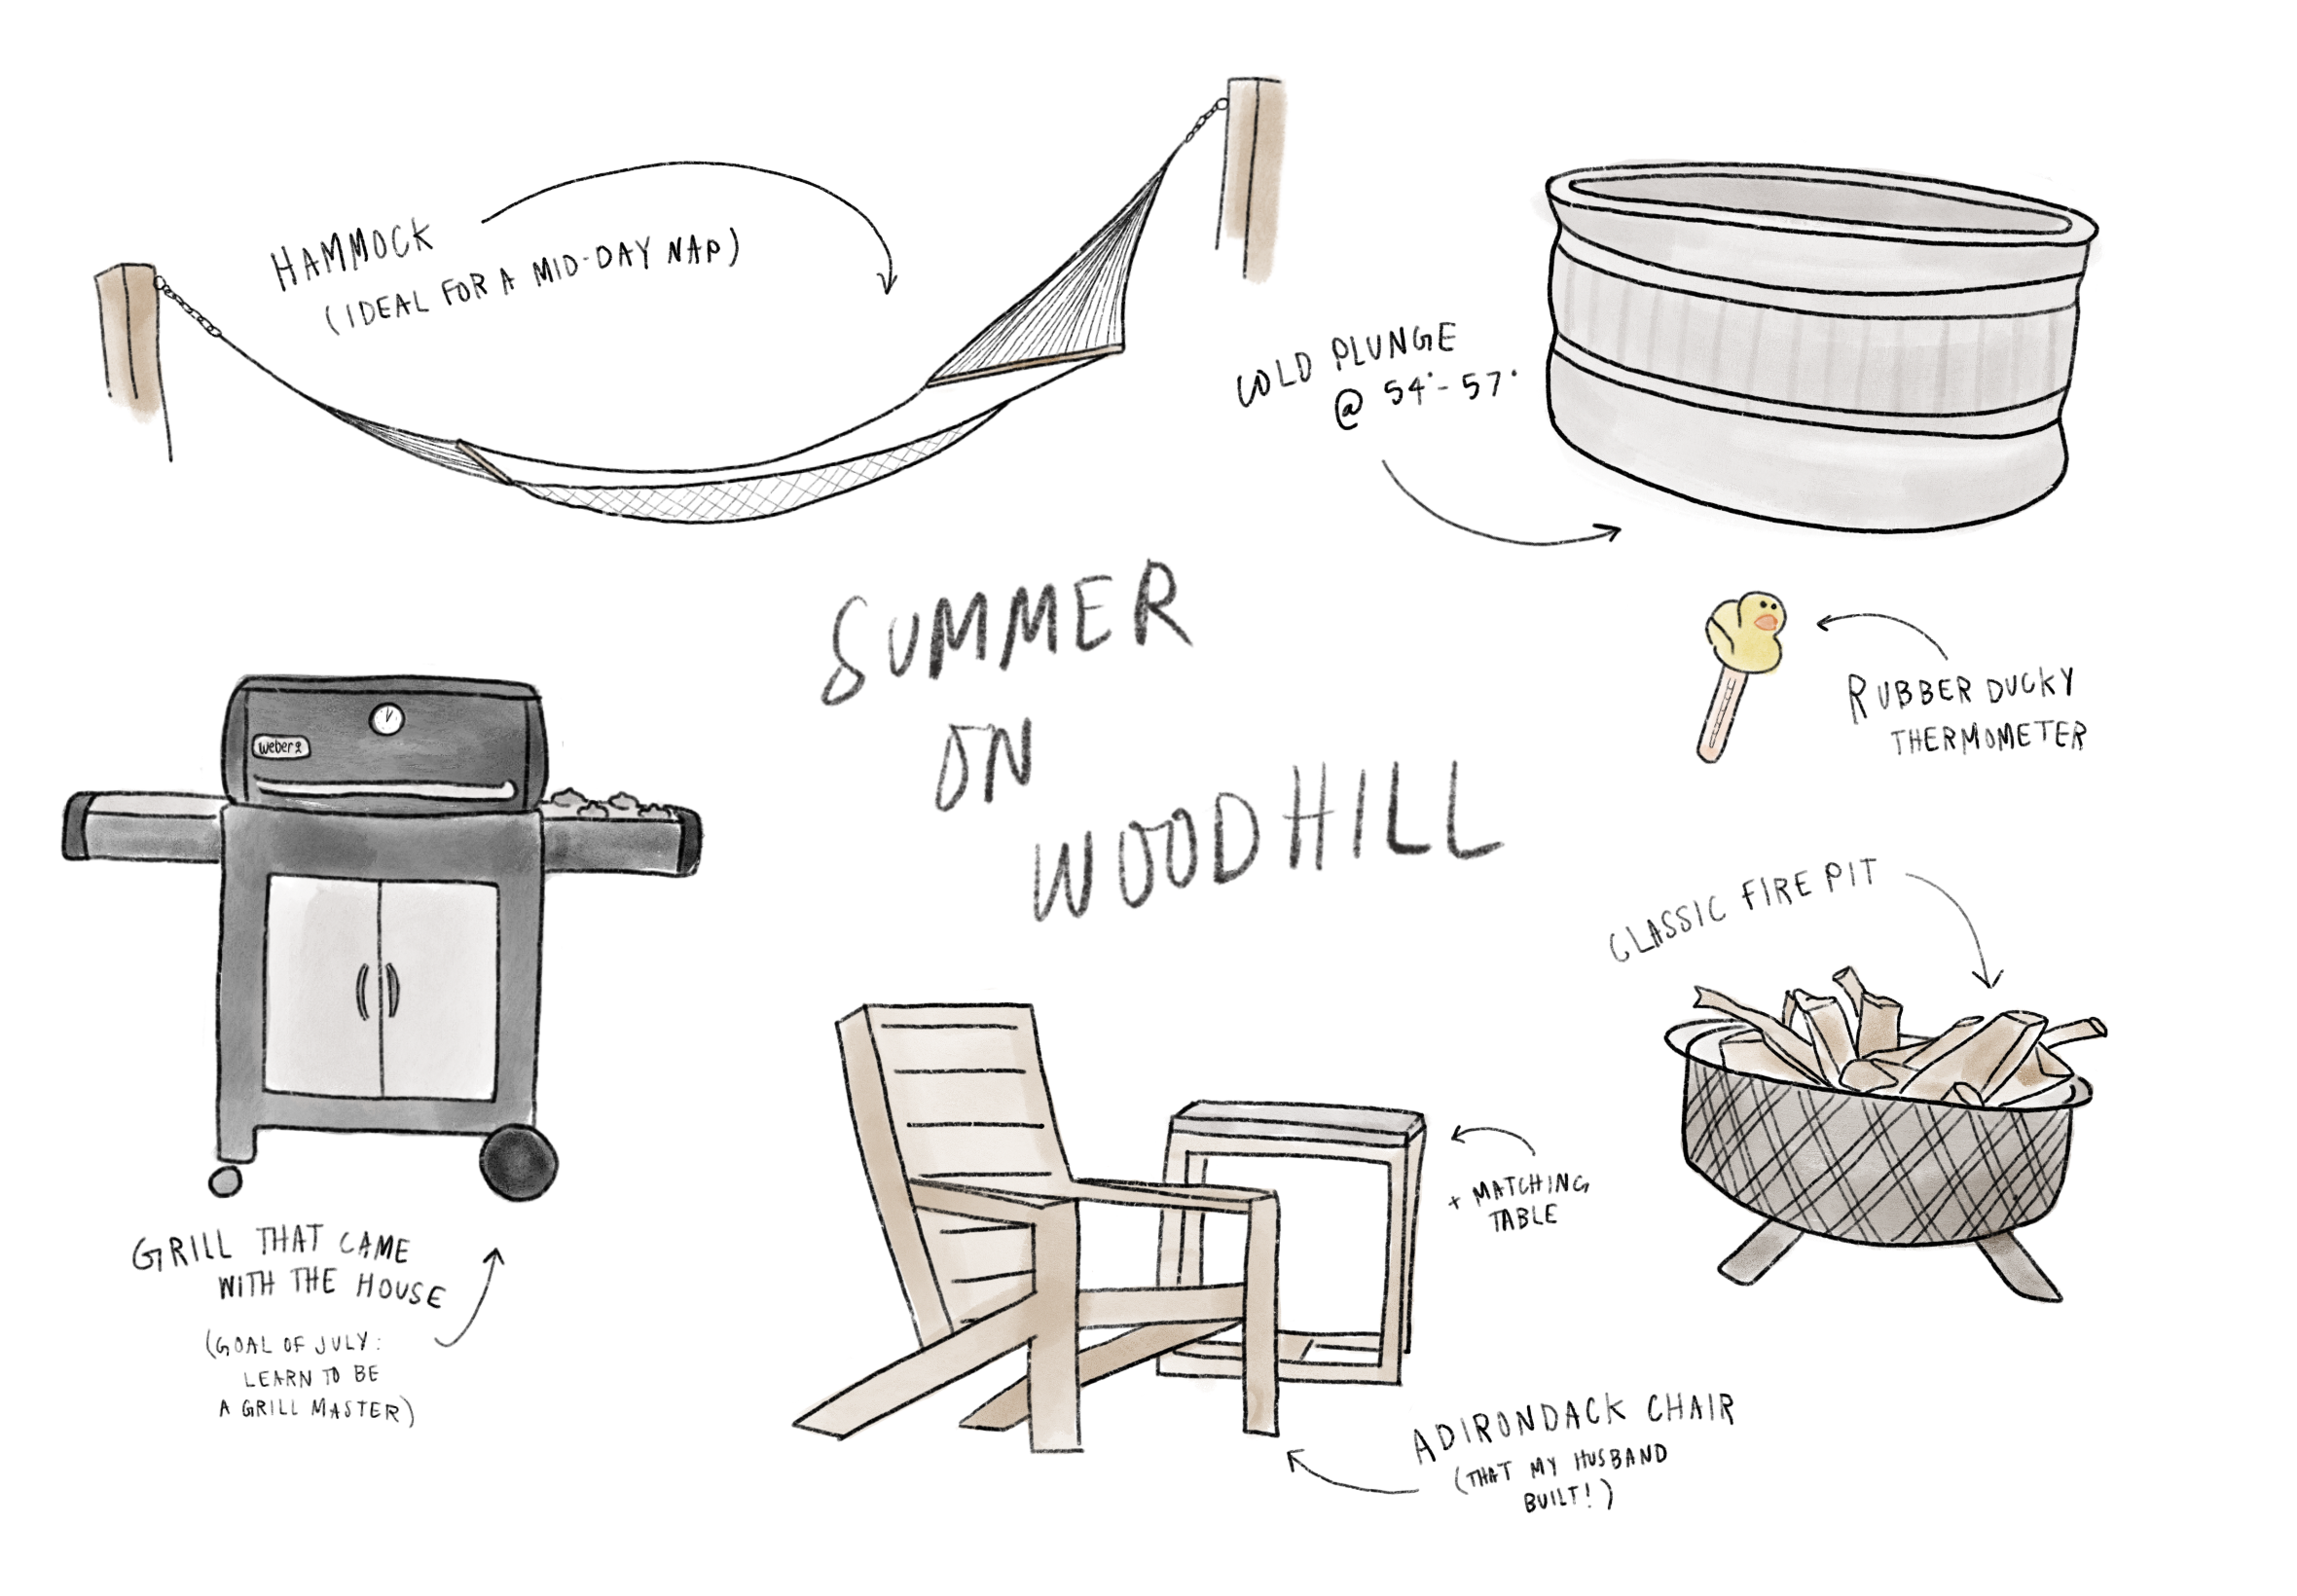 HAMMOCK
(IDEAL FOR A MID-DAY NAP)
COLD PLUNGE
@ 54°- 57°
SUMMER
ON
WOODHILL
RUBBER DUCKY
THERMOMETER
weber
CLASSIC FIRE PIT
+ MATCHING
TABLE
GRILL THAT CAME
WITH THE HOUSE
(GOAL OF JULY:
LEARN TO BE
A GRILL MASTER)
ADIRONDACK CHAIR
(THAT MY HUSBAND
BUILT!)